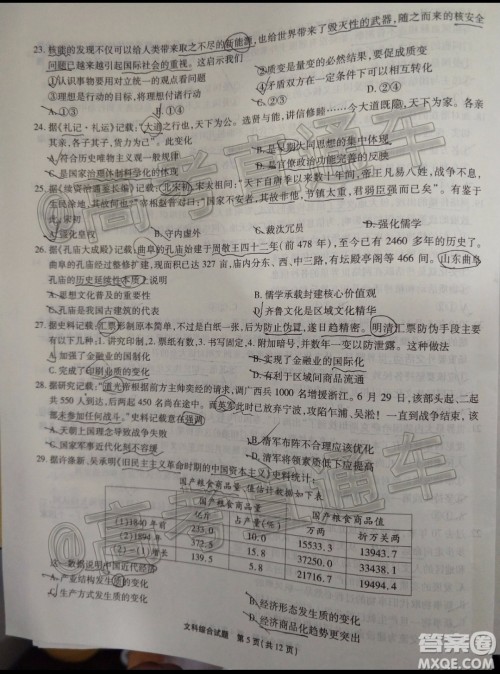 23. 核能的发现不仅可以给人类带来取之不尽的新能源,也给世界带来了毁灭性的武器,随之而来的核安全
问题已越来越引起国际社会的重视。这启示我们
①认识事物要用对立统一的观点看问题 ②质变是量变的必然结果,要促成质变
③理想是行动的目标,将理想付诸行动 ④矛盾双方在一定条件下可以相互转化
A. ①③ B. ①④ C. ②③ D. ②④
24. 据《礼记·礼运》记载:大道之行也,天下为公。选贤与能,讲信修睦……今大道既隐,天下为家。各亲
其亲,各子其子,货力为己。此变化
A. 符合历史唯物主义观一般规律 B. 是早期大同思想的集中体现
C. 是国家治理体制科学化的体现 D. 是宜使政治功能完善的反映
25. 《续资治通鉴长编》记载:北宋初,宋太祖问:“天下自唐季以来数十年间,帝王凡易八姓,战争不息,
生民涂地,其故何也?”宰相赵普对曰:“国家不安者,其故非他,节镇太重,君弱臣强而已矣”。有鉴于
此,宋初
A. 强化皇权 B. 守内虚外 C. 裁汰冗员 D. 强化儒学
26. 据《孔庙大成殿》记载:曲阜的孔庙始建于周敬王四十二年(前 478 年),至今已有 2460 多年的历史了。
曲阜的孔庙经过整修,现面积已达 327 亩,庙内分东、西、中三路,有坛殿亭阁等 466 间。山东曲阜
孔庙的历史延续性本质上说明
A. 思想文化普及的重要性 B. 儒学承载封建核心价值观
C. 孔庙是我国古建筑的代表 D. 齐鲁文化是区域文化精华
27. 据史料记载:汇票形制原本简单,不过是白纸一张,后为防止伪冒,遂日趋精密。明清汇票防伪手段主要
有以下几种:1. 讲究印制、2. 票纸有数、3. 书写固定、4. 附加暗号,并数年一变以防泄露。这种做法
A. 加强了金融业的国制化 B. 实现了金融业的国际化
C. 完成了印刷业质的变化 D. 有利于区域间商品流通
28. 据研究记载:“道光帝根据前方主帅奕经的请求,调广西兵 1000 名增援浙江。6 月 29 日,该部头起、二起
共 550 人到达,后两起 450 名尚在途中。而英军此时已放弃宁波,攻陷乍浦、吴淞!一直到战争结束,该
部未参加任何战斗。”史料记载意在强调
A. 天朝上国理念导致战争失败 B. 清军布阵不合理应该优化
C. 国家军事近代化刻不容缓 D. 清军将领素质低下应提高
29. 据许涤新、吴承明《旧民主主义革命时期的中国资本主义》统计:
国产粮食商品量、值估计数据如下表
国产粮食商品量 国产粮食商品值
亿斤 占产量(%) 万两 折万关两
(1)1840 年前 233.0 10.0 15533.3 13943.7
(2)1894 年 372.5 15.8 37250.0 33438.1
(2)-(1)增长 139.5 5.8 21716.7 19494.4
这一数据说明中国近代经济
A. 产业结构发生质的变化 B. 经济形态发生质的变化
C. 生产方式发生质的变化 D. 经济商品化趋势更突出
文科综合试题 第 5 页(共 12 页)
@高考直通车
@高考直通车
答案圈
MXQE.COM